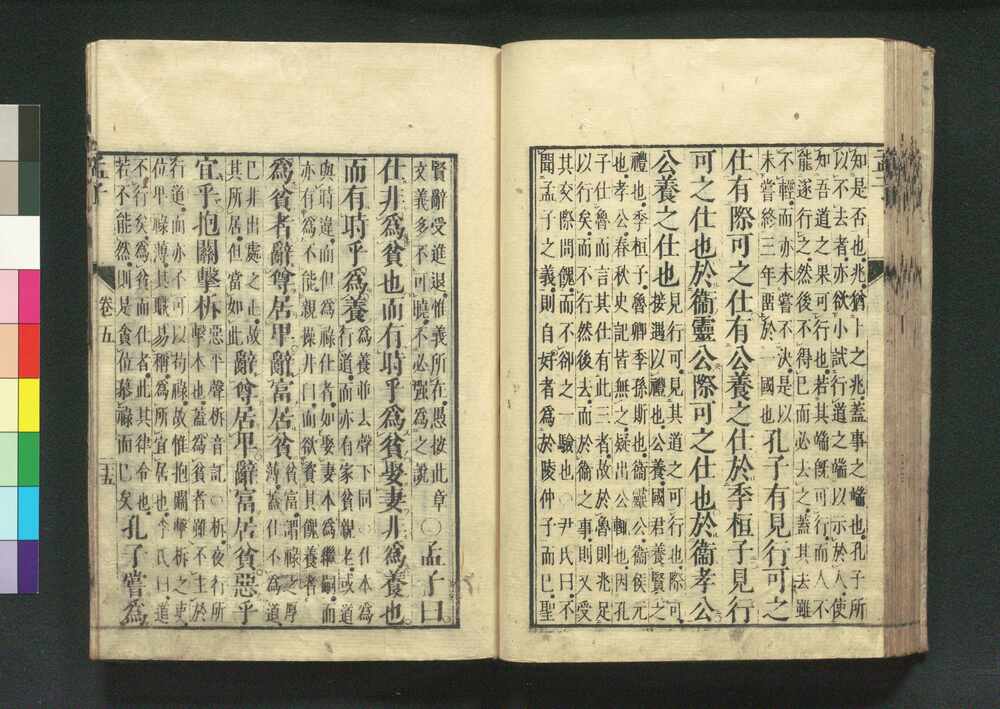 知是否也兆猶卜之兆蓋事之端也孔子所
以不去者亦欲小試行道之端以示於人使
知吾道之果可行也若其端旣可行而人不
能遂行之然後不得已而必去之蓋其去雖
不輕而亦未嘗不決是以
未嘗終三年留於一國也
孔子有見行可之
仕有際可之仕有公養之仕於季桓子見行
可之仕也於衞靈公際可之仕也於衞孝公
公養之仕也
見行可見其道之可行也際可
接遇以禮也公養國君養賢之
禮也季桓子魯卿季孫斯也衞靈公衞侯元
也孝公春秋史記皆無之疑出公輒也因孔
子仕魯而言其仕有此三者故於魯則兆足
以行矣而不行然後去而於衞之事則又受
其交際問餽而不卻之一驗也○尹氏曰不
聞孟子之義則自好者爲於陵仲子而已聖
賢辭受進退惟義所在愚按此章
文義多不可曉不必強爲之說
○孟子曰
仕非爲貧也而有時乎爲貧娶妻非爲養也
而有時乎爲養
爲養並去聲下同○仕本爲
行道而亦有家貧親老或道
與時違而但爲祿仕者如娶妻本爲繼嗣而
亦有爲不能親操井臼而欲資其餽養者
爲貧者辭尊居卑辭富居貧
貧富謂祿之厚
薄蓋仕不爲道
已非出處之正故
其所居但當如此
辭尊居卑辭富居貧惡乎
宜乎抱關擊柝
惡平聲柝音託○柝夜行所
擊木也蓋爲貧者雖不主於
行道而亦不可以苟祿故惟抱關擊柝之吏
位卑祿薄其職易稱爲所宜居也李氏曰道
不行矣爲貧而仕者此其律令也
若不能然則是貪位慕祿而已矣
孔子嘗爲
孟子
卷五
十五